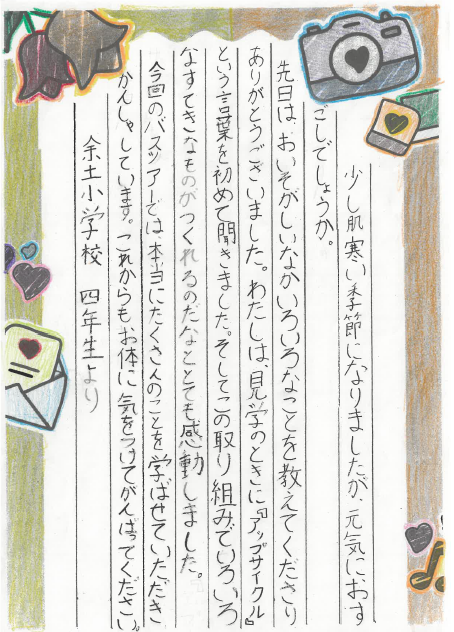 少し肌寒い季節になりましたが、元気におす
ごしでしょうか。
先日は、おいそがしいなかいろいろなことを教えてくださり
ありがとうございました。わたしは、見学のときに『アップサイクル』
という言葉を初めて聞きました。そしてこの取り組みでいろいろ
なすてきなものがつくれるのだなととても感動しました。
今回のバスツアーでは、本当にたくさんのことを学ばせていただき
かんしゃしています。これからもお体に気をつけてがんばってください。
余土小学校 四年生より